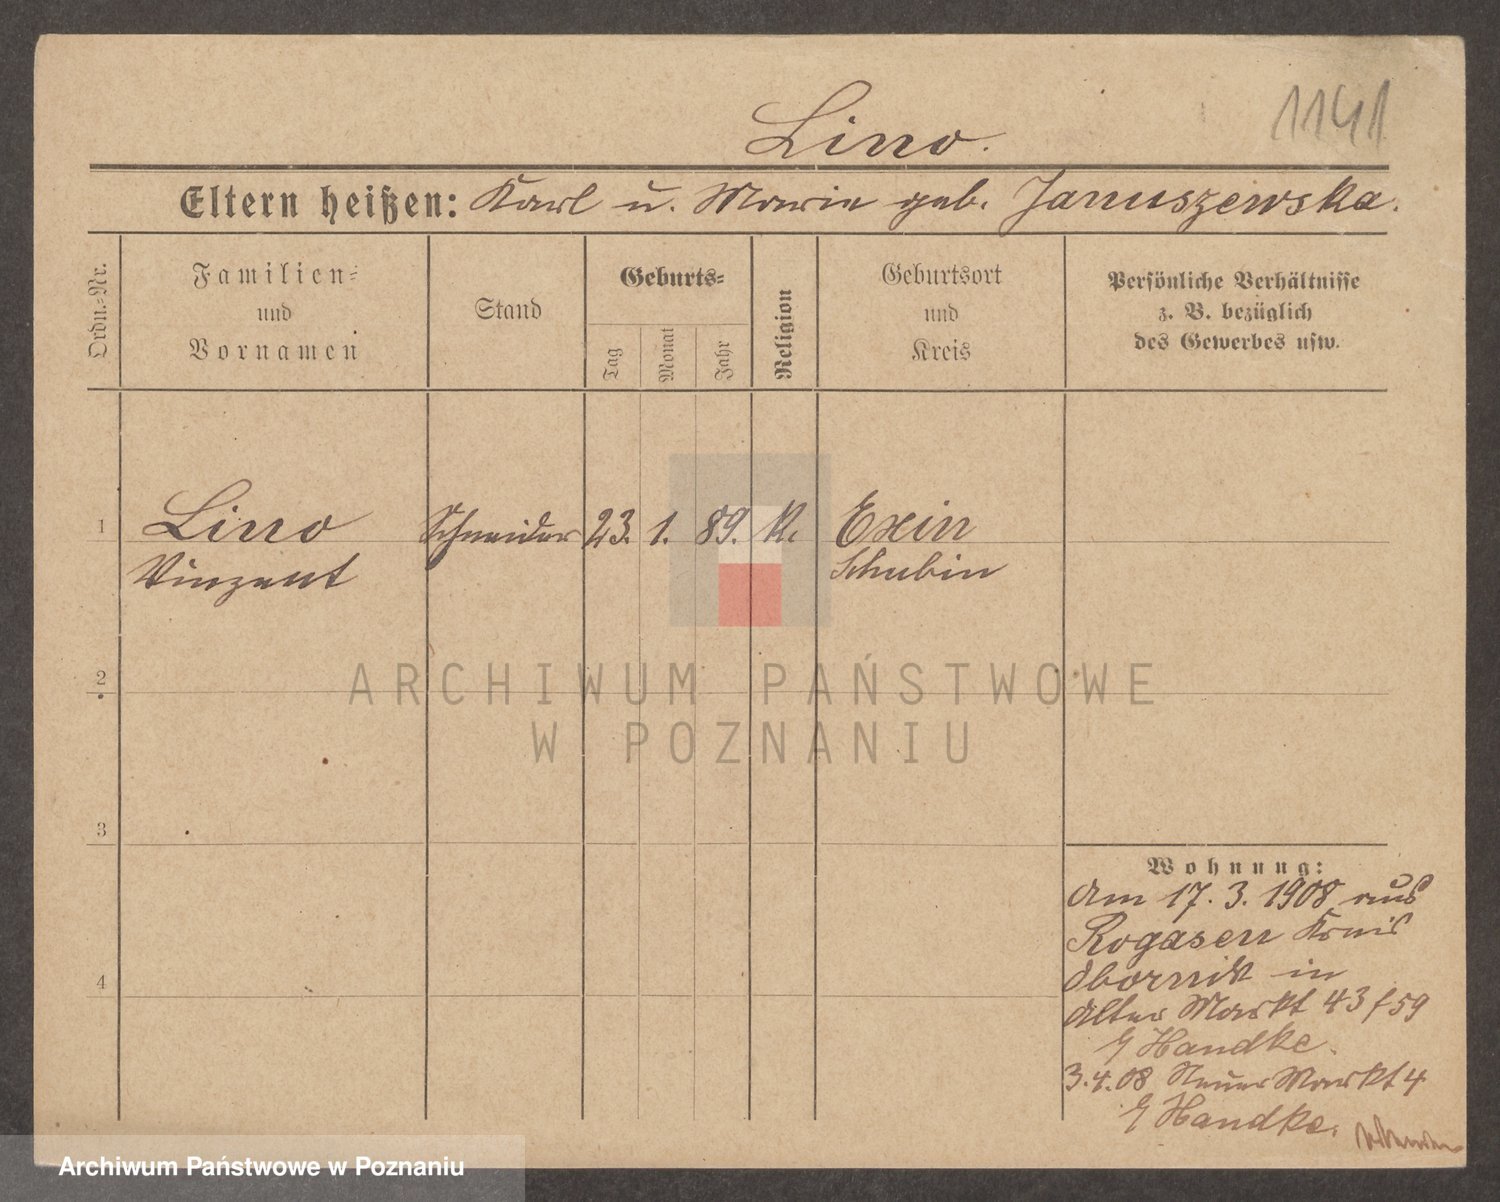 1141
Lino.
Eltern heißen: Karl u. Marie geb. Januszewska.
Ordn.-Nr.
Familien-
und
Vornamen
Stand
Geburts-
Tag
Monat
Jahr
Religion
Geburtsort
und
Kreis
Persönliche Verhältnisse
z. B. bezüglich
des Gewerbes usw.
1
Lino
Vinzent
Schneider
23. 1. 89. K.
Exin
Schubin
2
3
4
Wohnung:
Am 17. 3. 1908 aus
Rogasen Kreis
Obornik in
Alter Markt 43 f 59
Handke.
3.4.08 Neuer Markt 4
Handke.
ARCHIWUM PAŃSTWOWE
W POZNANIU
Archiwum Państwowe w Poznaniu